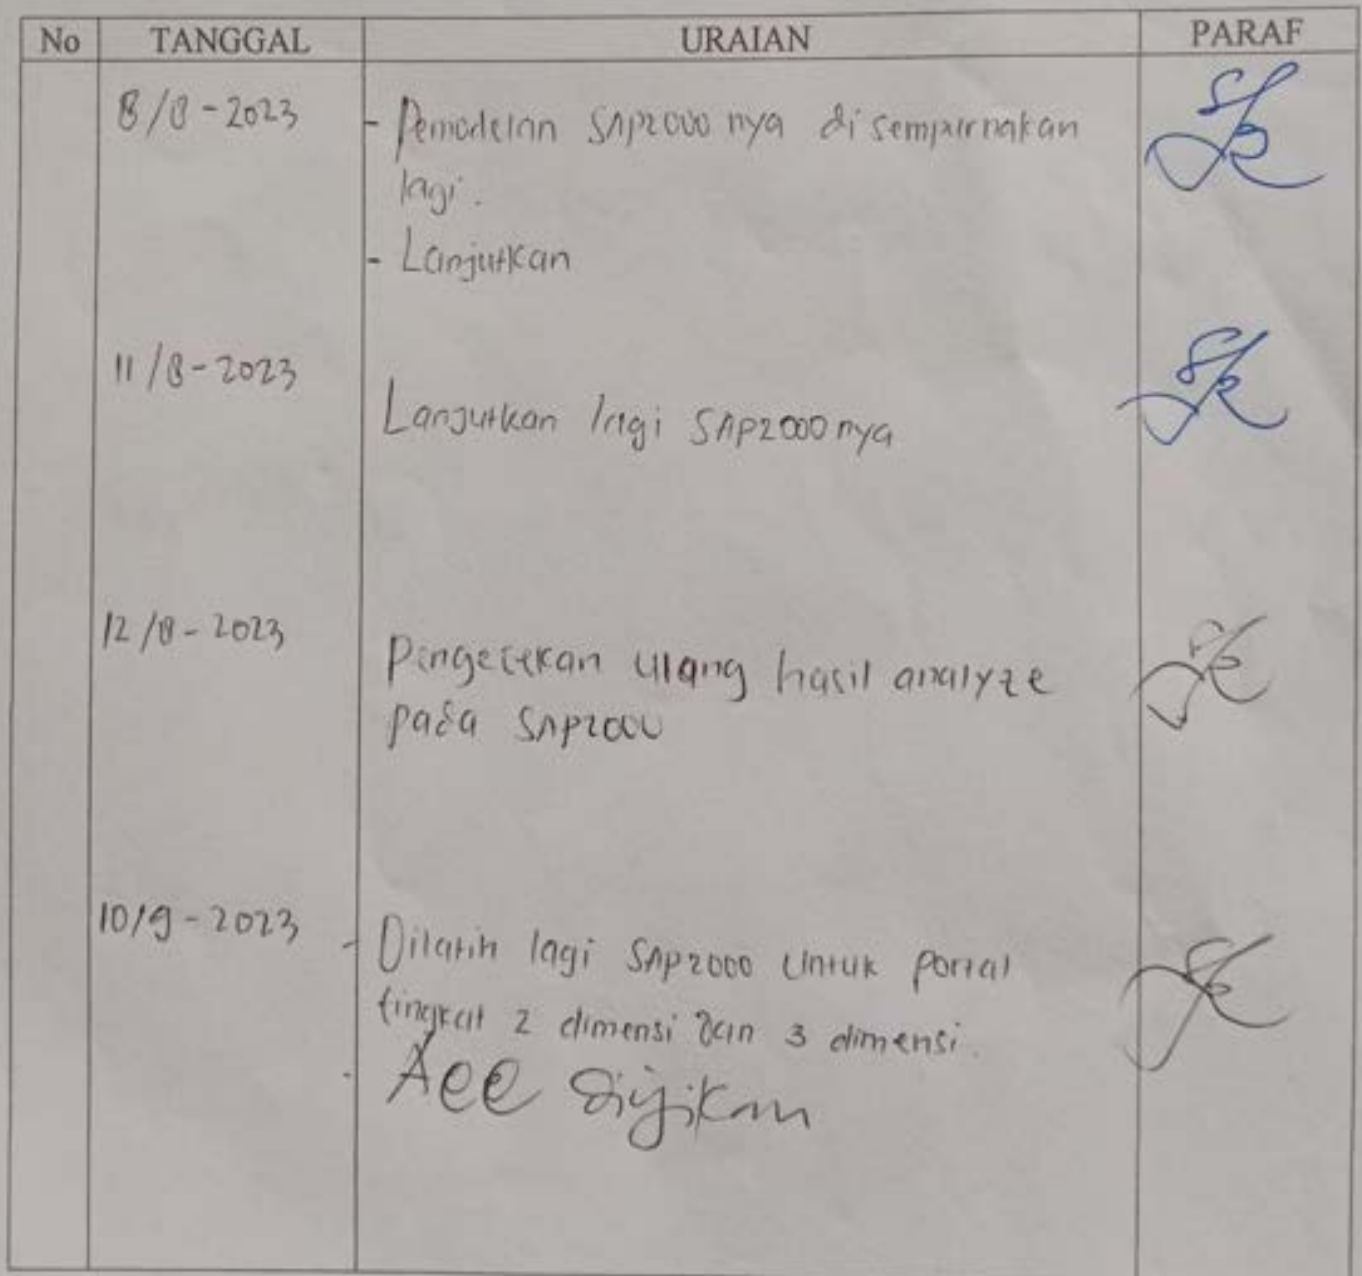 No TANGGAL URAIAN PARAF
8/8-2023 - Pemodelan SAP2000 nya disempurnakan
lagi.
- Lanjutkan
11/8-2023
Lanjutkan lagi SAP2000 nya
12/8-2023
Pengecekan ulang hasil analyze
pada SAP2000
10/9-2023
- Dilatih lagi SAP2000 untuk portal
tingkat 2 dimensi dan 3 dimensi.
- Acc diujikan